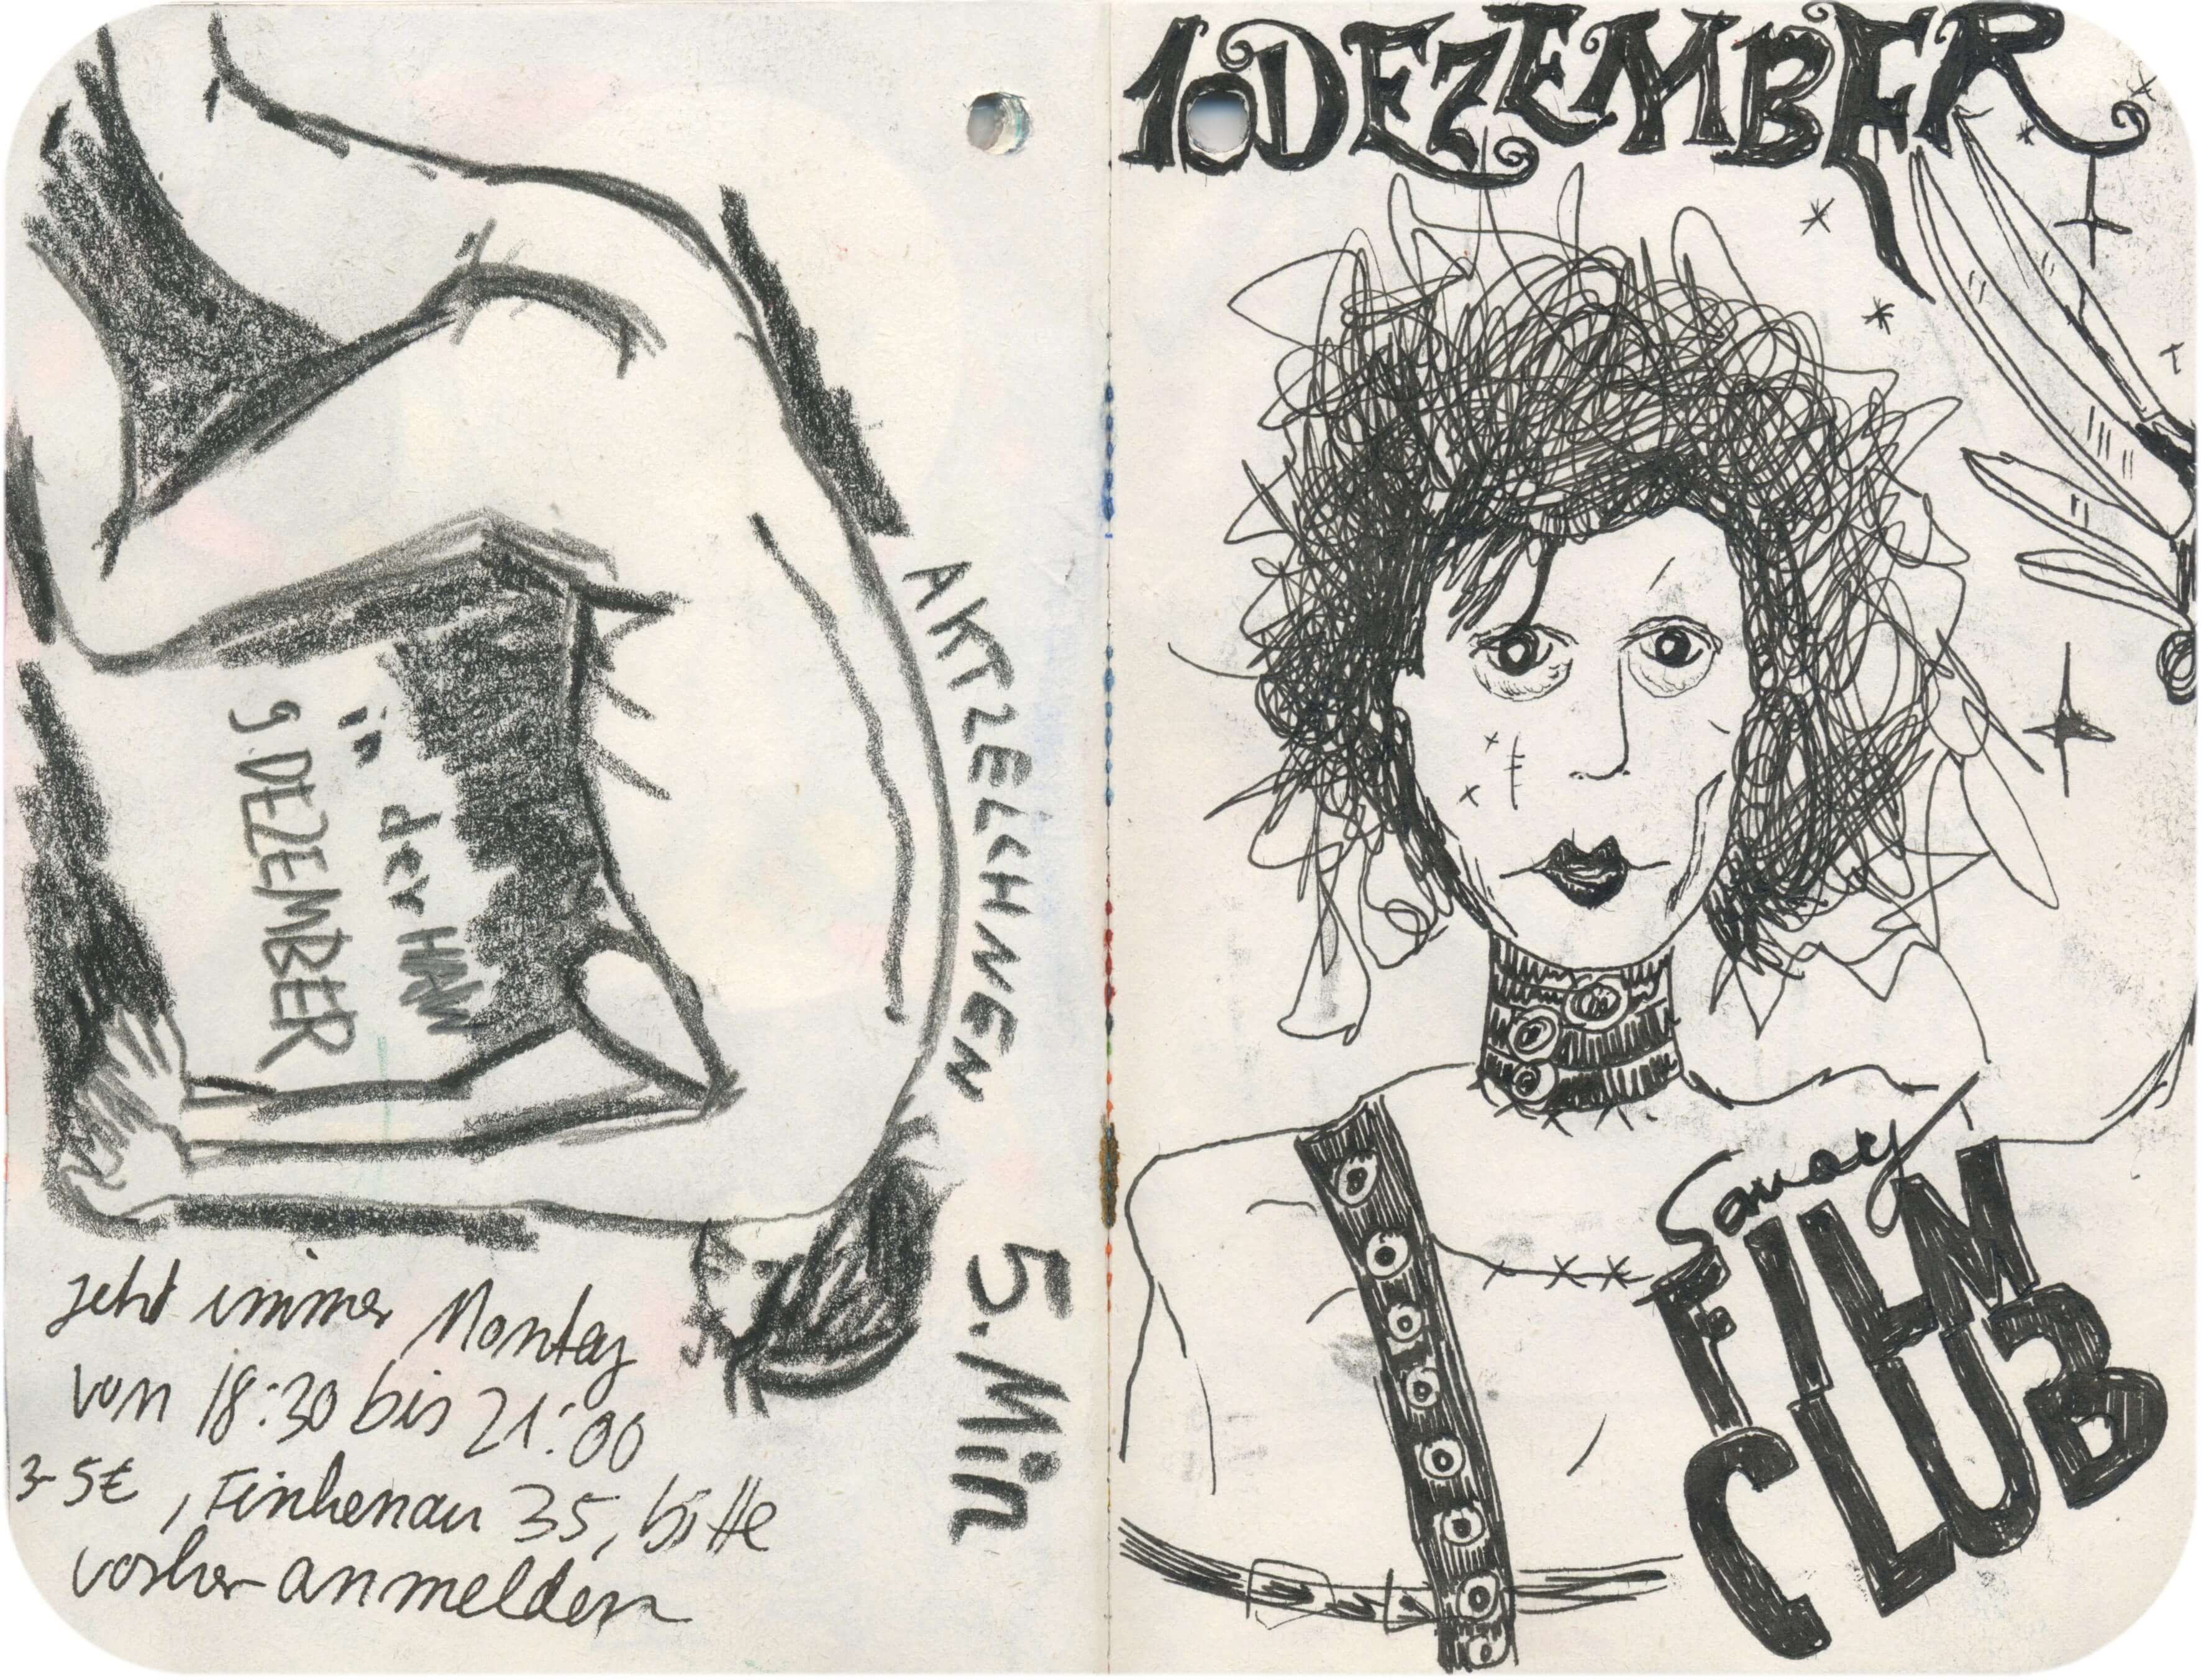 AKTZEICHNEN
5. Min
in der HAW
9. DEZEMBER
jetzt immer Montag
von 18:30 bis 21:00
3-5€, Finkenau 35, bitte
vorher anmelden
10 DEZEMBER
Savoy
FILM
CLUB